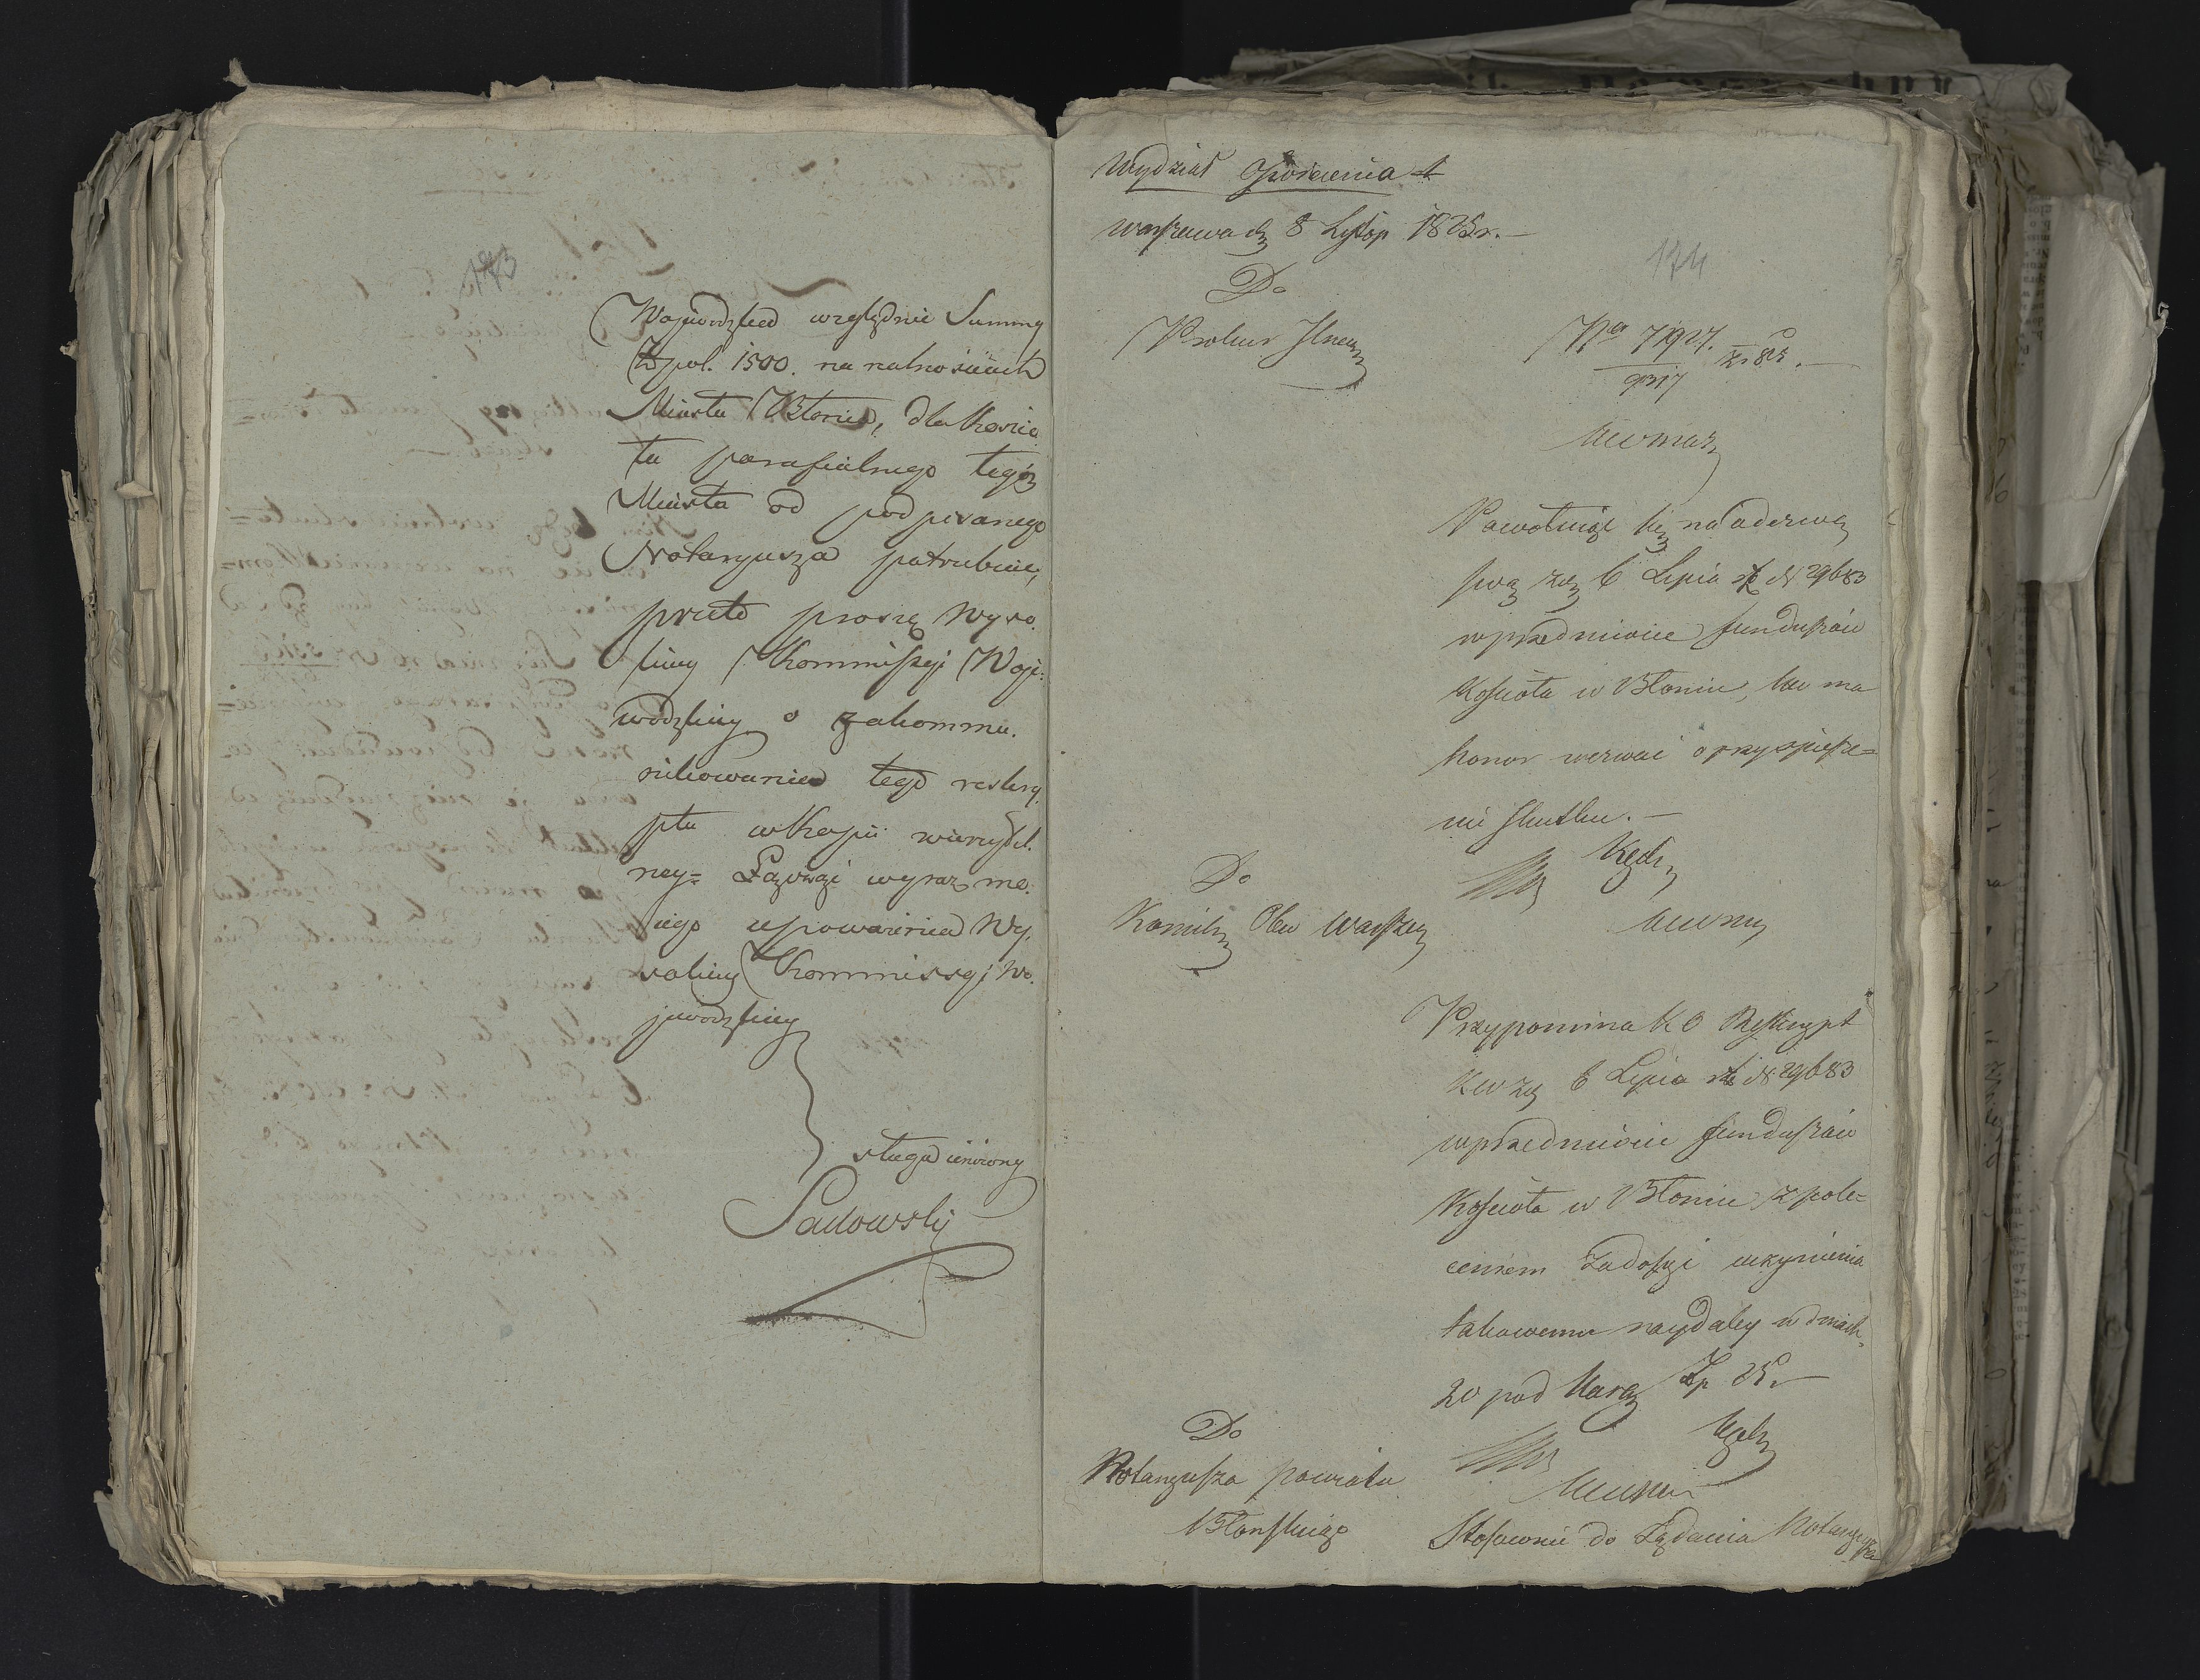 173
Wojewodzkied względnie Summy
Zł pol. 1500. na realnosciach
Miasta Błonia, dla Koscio
ła parafialnego tegoż
Miasta od podpisanego
Notaryusza potrzebuie,
przeto proszę Wyso
kiey Kommissyi Woje=
wodzkiey o zakommu.
nikowanie tego reskry
ptu w Kopii wierzytel.
ney= Łazwagi wyraz me.
iego upoważnienia Wy,
sokiey Kommissyi Wo.
jewodzkiey
sługa uniżony
Sadowski
Wydział Oświecenia
Warszawa d 8 Listop 1825 r.
174
Do
Prokur Jlney
Nro 71927.
9317
Powołuiąc się na odezwę
swą z d 6 Lipca rb N 29683
w przedmiocie funduszów
Kościoła w Błoniu, Kw ma
honor wezwać o przyspiesze=
nie skutku.
Do
Kommiss Obw Warszaw
Przypomina K O Reskrypt
Kw z d 6 Lipca rb N 29683
w przedmiocie funduszów
Kościoła w Błoniu z pole=
ceniem zadosyć uczynienia
takowemu naydaley w dniach
20 pod karą Zp 25
Do
Notaryusza powiatu
Błonskiego
Stosownie do żądania Notaryusza